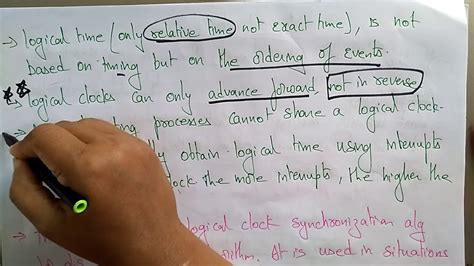 → logical time (only relative time not exact time), is not
based on timing but on the ordering of events.
→ logical clocks can only advance forward, not in reverse
processes cannot share a logical clock.
obtain logical time using interrupts
the more interrupts, the higher the
logical clock synchronization alg
It is used in situations